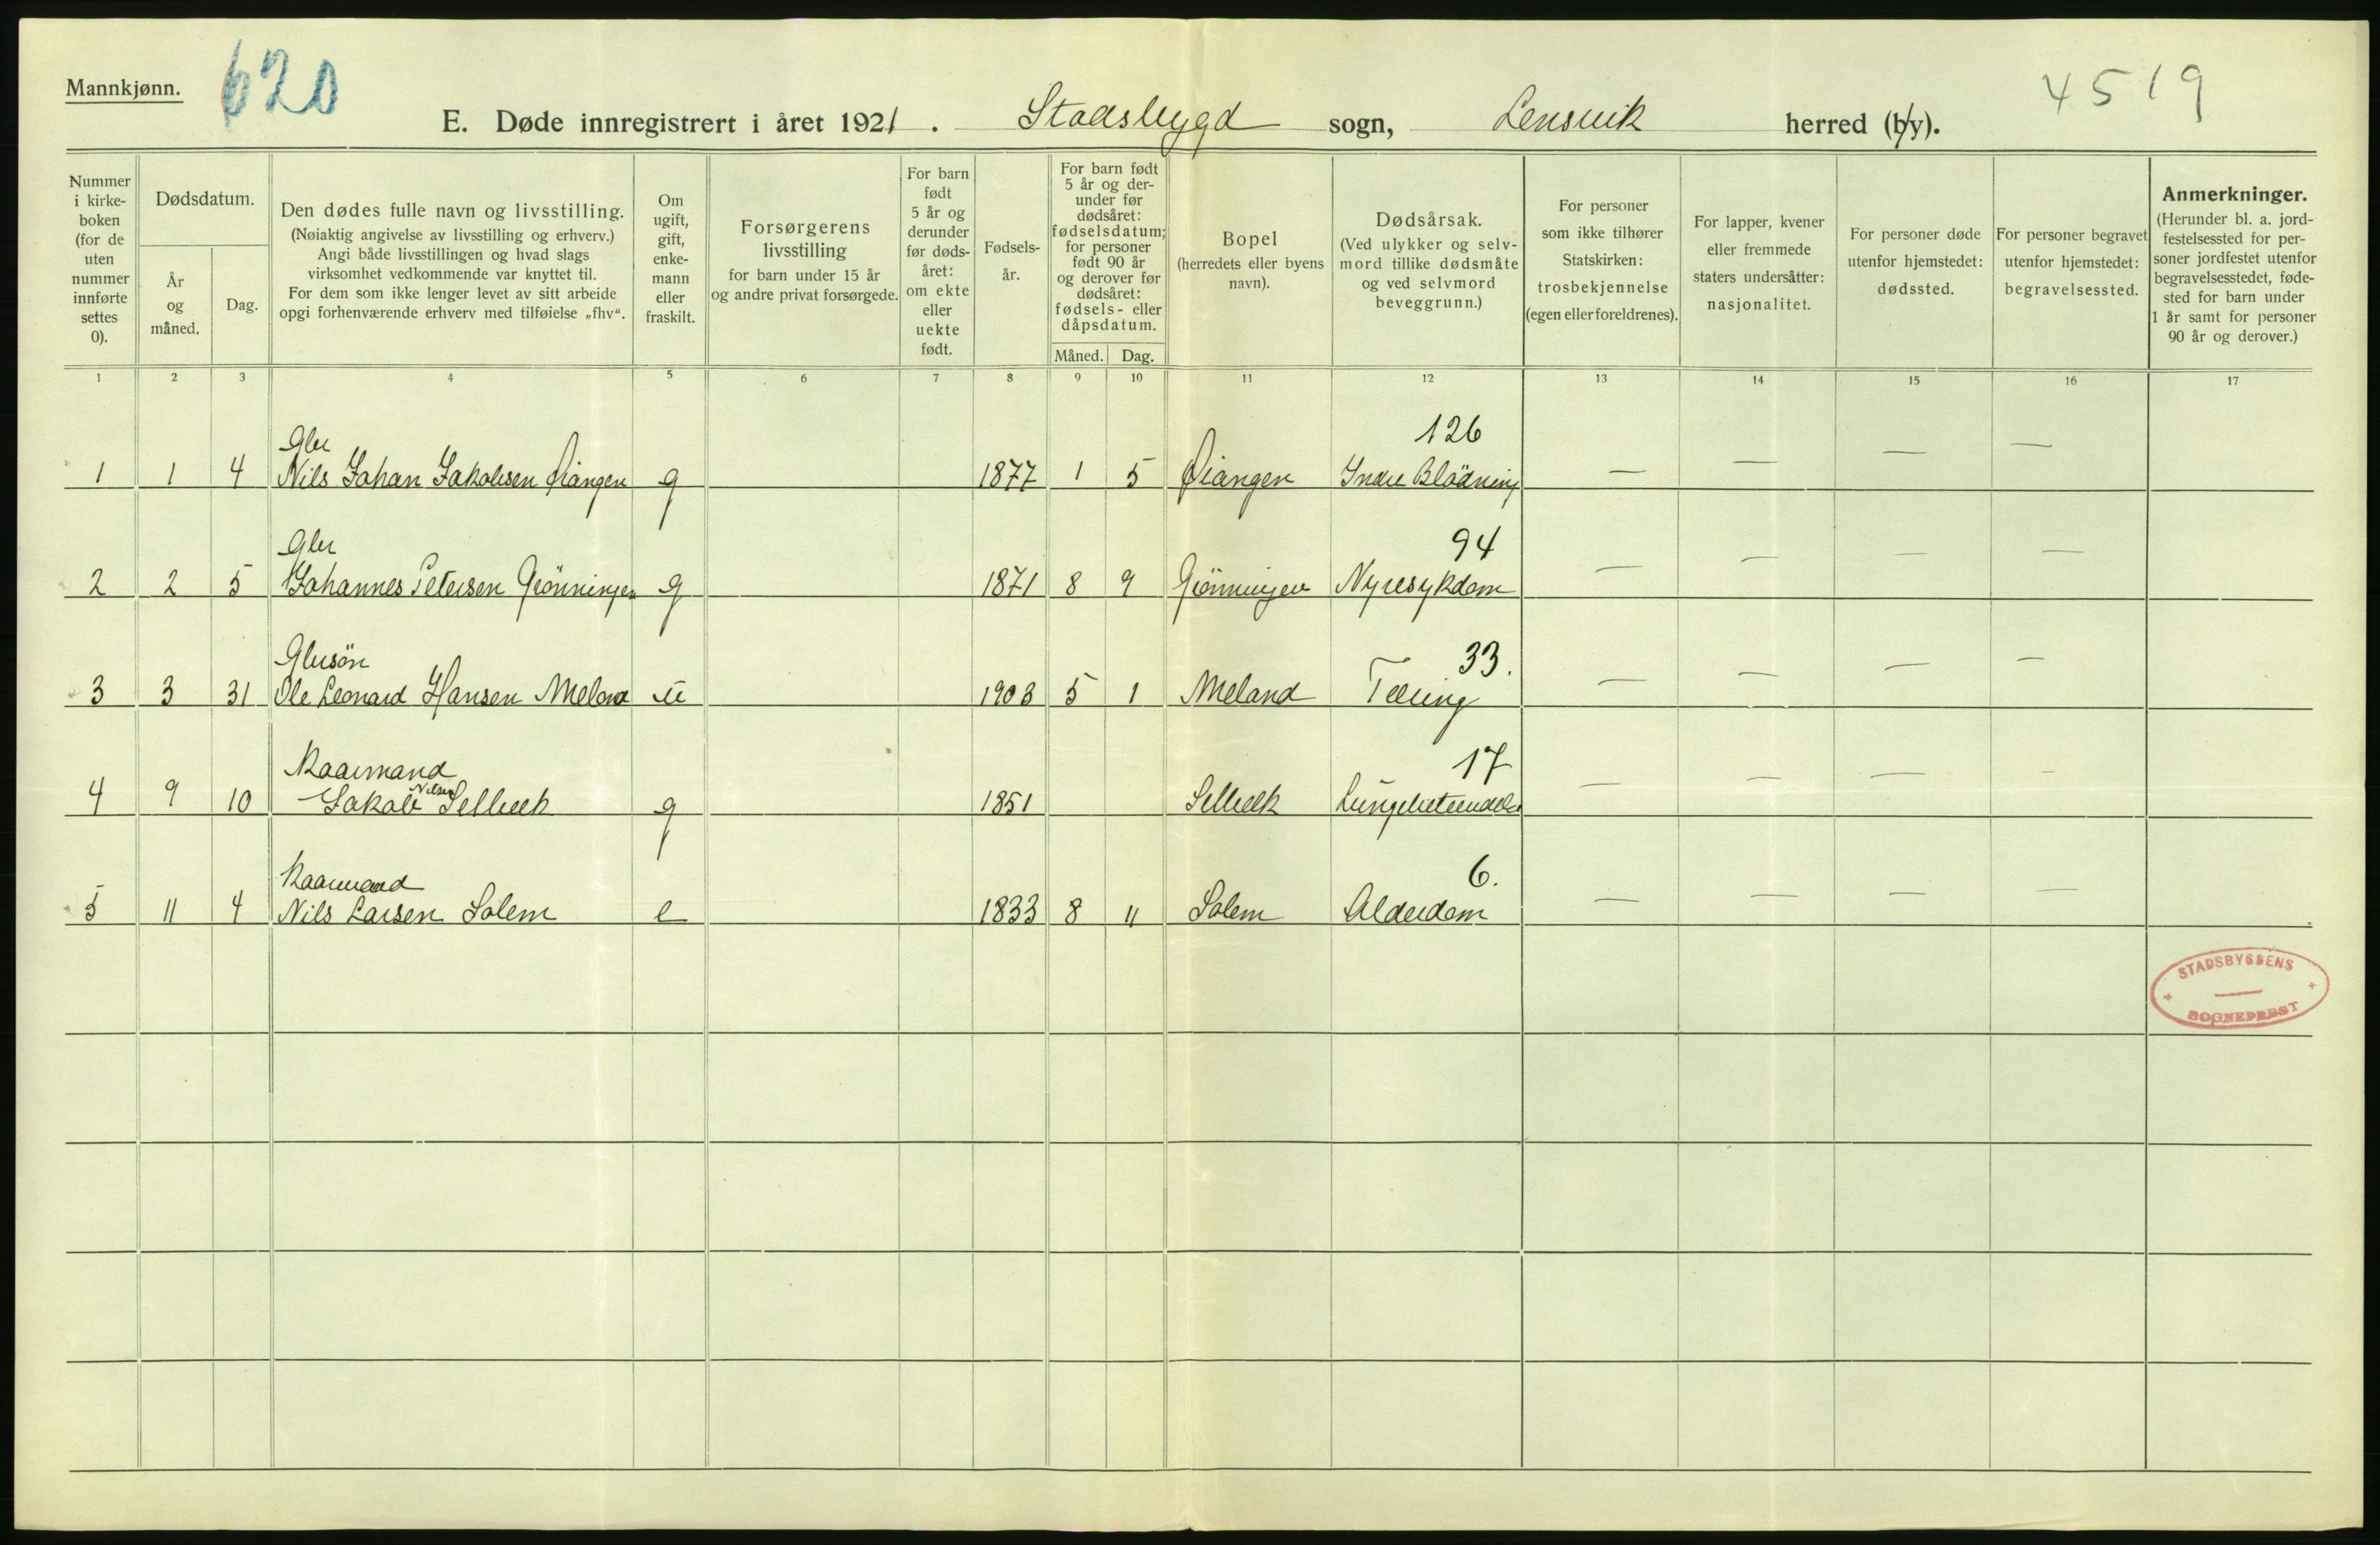 Mannkjønn.
620
4519
E. Døde innregistrert i året 1921. Stadsbygd sogn, Lensvik herred (by).
Nummer i kirke-boken (for de uten nummer innførte settes 0).
Dødsdatum.
År og måned.
Dag.
Den dødes fulle navn og livsstilling.
(Nøiaktig angivelse av livsstilling og erhverv.)
Angi både livsstillingen og hvad slags
virksomhet vedkommende var knyttet til.
For dem som ikke lenger levet av sitt arbeide
opgi forhenværende erhverv med tilføielse „fhv“.
Om ugift, gift, enke-mann eller fraskilt.
Forsørgerens livsstilling
for barn under 15 år
og andre privat forsørgede.
For barn født 5 år og derunder før døds-året: om ekte eller uekte født.
Fødsels-år.
For barn født 5 år og der-under før dødsåret: fødselsdatum; for personer født 90 år og derover før dødsåret: fødsels- eller dåpsdatum.
Måned.
Dag.
Bopel
(herredets eller byens navn).
Dødsårsak.
(Ved ulykker og selv-mord tillike dødsmåte og ved selvmord beveggrunn.)
For personer som ikke tilhører Statskirken: trosbekjennelse (egen eller foreldrenes).
For lapper, kvener eller fremmede staters undersåtter: nasjonalitet.
For personer døde utenfor hjemstedet: dødssted.
For personer begravet utenfor hjemstedet: begravelsessted.
Anmerkninger.
(Herunder bl. a. jord-festelsessted for per-soner jordfestet utenfor begravelsesstedet, føde-sted for barn under 1 år samt for personer 90 år og derover.)
1 2 3 4 5 6 7 8 9 10 11 12 13 14 15 16 17
Gbr 126
1 1 4 Nils Johan Jakobsen Øiangen g 1877 1 5 Øiangen Indre Blödning — — — —
Gbr 94
2 2 5 Johannes Petersen Grönningen g 1871 8 9 Grönningen Nyresykdom — — — —
Gbrsön 33.
3 3 31 Ole Leonard Hansen Meland u 1903 5 1 Meland Tæring — — — —
Kaarmand 17
4 9 10 Jakob Nilsen Selbæk g 1851 Selbæk Lungebetændelse — — — —
Kaarmand 6.
5 11 4 Nils Larsen Solem e 1833 8 11 Solem Alderdom — — — —
STADSBYGDENS
SOGNEPREST